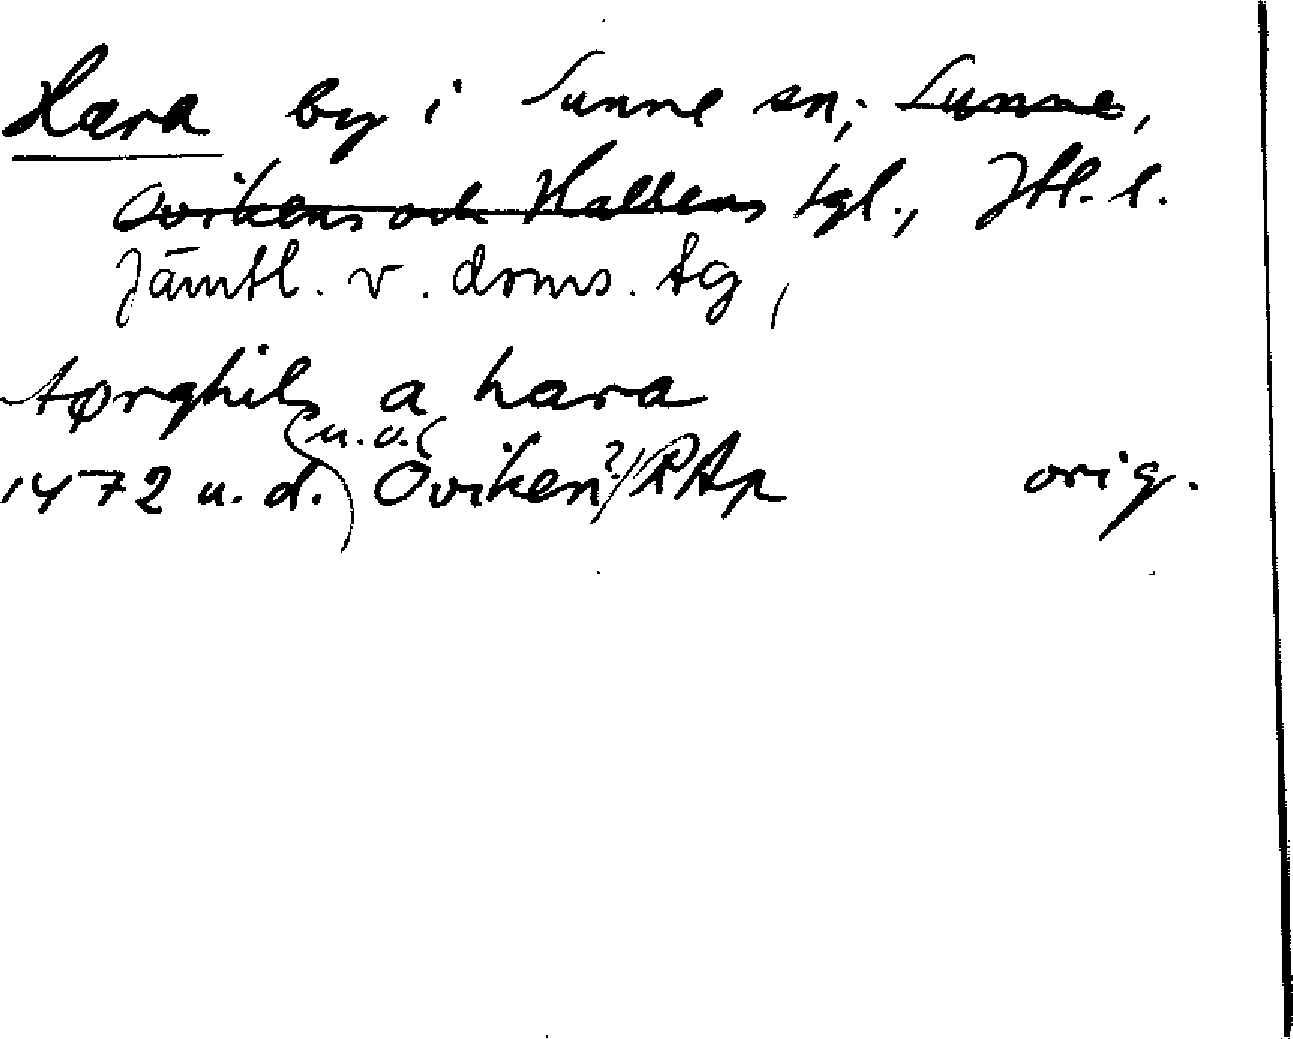 Hara by i Sunne sn, Sunne,
Ovikens och Hallens tgl., Jtl. l.
Jämtl. v. doms. tg,
tørghils a hara
(u.o.(
1472 u. d.) Oviken?/RAp orig.